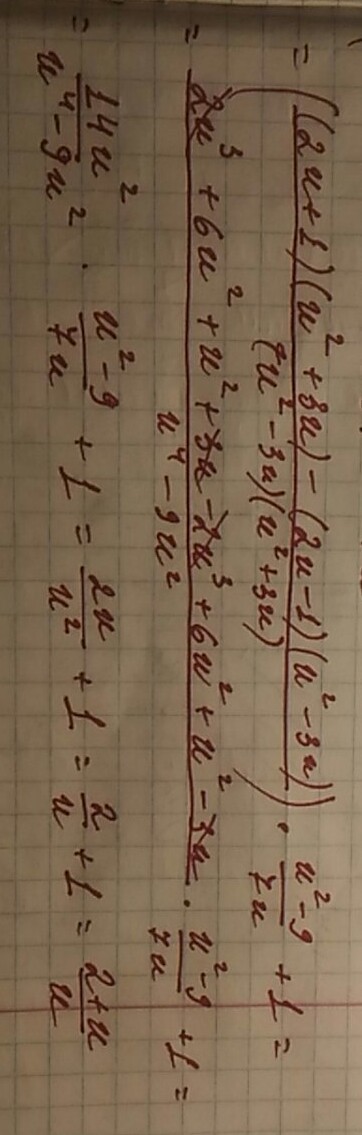 = ((2u+1)(u²+3u) - (2u-1)(u²-3u)) / ((u²-3u)(u²+3u)) · (u²-9)/(7u) + 1 =
= (2u³ + 6u² + u² + 3u - 2u³ + 6u² + u² - 3u) / (u⁴ - 9u²) · (u²-9)/(7u) + 1 =
= 14u²/(u⁴ - 9u²) · (u²-9)/(7u) + 1 = 2u/u² + 1 = 2/u + 1 = (2+u)/u